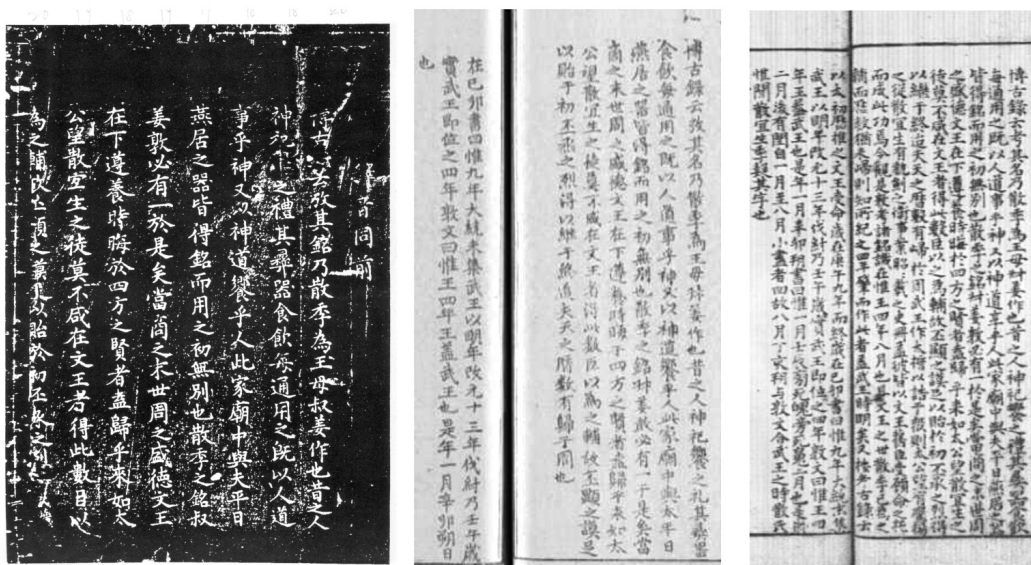 音同前
博古云攷其銘乃散季為王母叔姜作也昔之人
神祀之禮其彝器食飲每通用之既以人道
事乎神又以神道饗乎人此家廟中與夫平日
燕居之器皆得銘而用之初無別也散季之銘叔
姜敦必有一於是矣當商之末世周之盛德文王
在下遵養時晦於四方之賢者盍歸乎來如太
公望散宜生之徒莫不咸在文王者得此數臣以
為之輔故丕顯之謨足以貽於初丕承之烈
博古錄云攷其名乃散季為王母叔姜作也昔之人神祀饗之礼其彝器
食飲每通用之既以人道事乎神又以神道饗乎人此家廟中與太平日
燕居之器皆得銘而用之初無別也散季之銘叔姜敦必有一于是矣當
商之末世周之盛德文王在下遵養時晦于四方之賢者盍歸乎來如太
公望散宜生之徒莫不咸在文王者得此數臣以為之輔故丕顯之謨足
以貽于初丕承之烈得以継于終造夫天之曆數有歸于周也
在已卯書曰惟九年大統未集武王以明年改元十三年伐紂乃壬午歲
實武王即位之四年敦文曰惟王四年王蓋武王也是年一月辛卯朔日
也
博古錄云考其名乃散季為王母叔姜作也昔之人神祀饗之禮其彝器食飲
每通用之既以人道事乎神又以神道享乎人此家廟中與夫平日燕居之器
皆得銘而用之初無別也散季之銘叔姜敦必有一於是矣當商之末世周
之盛德文王在下遵養時晦於四方之賢者盍歸乎來如太公望散宜生之
徒莫不咸在文王者得此數臣以之為輔故丕顯之謨足以貽於初丕承之烈得
以繼于終造夫天之曆數有歸於周武王作大
之從散宜生有
而成此功焉今觀是敦者諸銘識在惟王四年八月也
以太初曆推之文王受命歲在庚午九年而終歲在己卯書曰惟九年大統未集
武王以明年改元十三年伐紂乃壬午歲實武王即位之四年敦文曰惟王四
年王蓋武王也是年一月辛卯朔書曰惟一月壬辰旁死魄
二月後有閏自一月至八月小盡者四故八月丁亥朔與敦文合武王之時散氏
惟聞散宜生季疑其字也